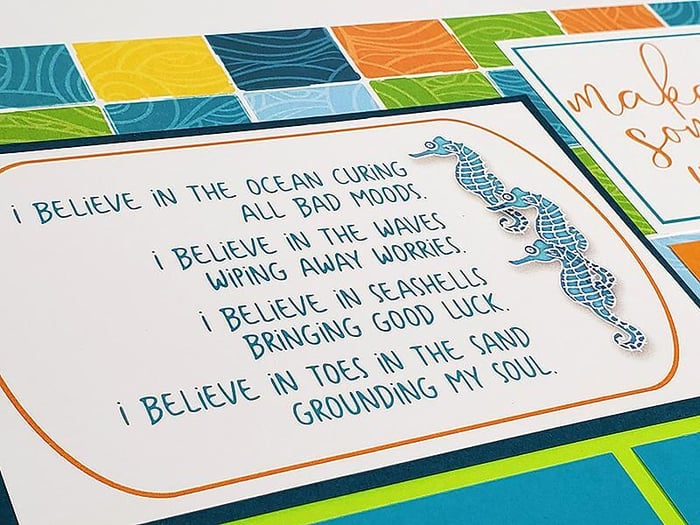 i BELiEVE iN THE OCEAN CURING
ALL BAD MOODS.
i BELiEVE iN THE WAVES
WiPiNG AWAY WORRiES.
i BELiEVE iN SEASHELLS
BRiNGiNG GOOD LUCK.
i BELiEVE iN TOES iN THE SAND
GROUNDiNG MY SOUL.